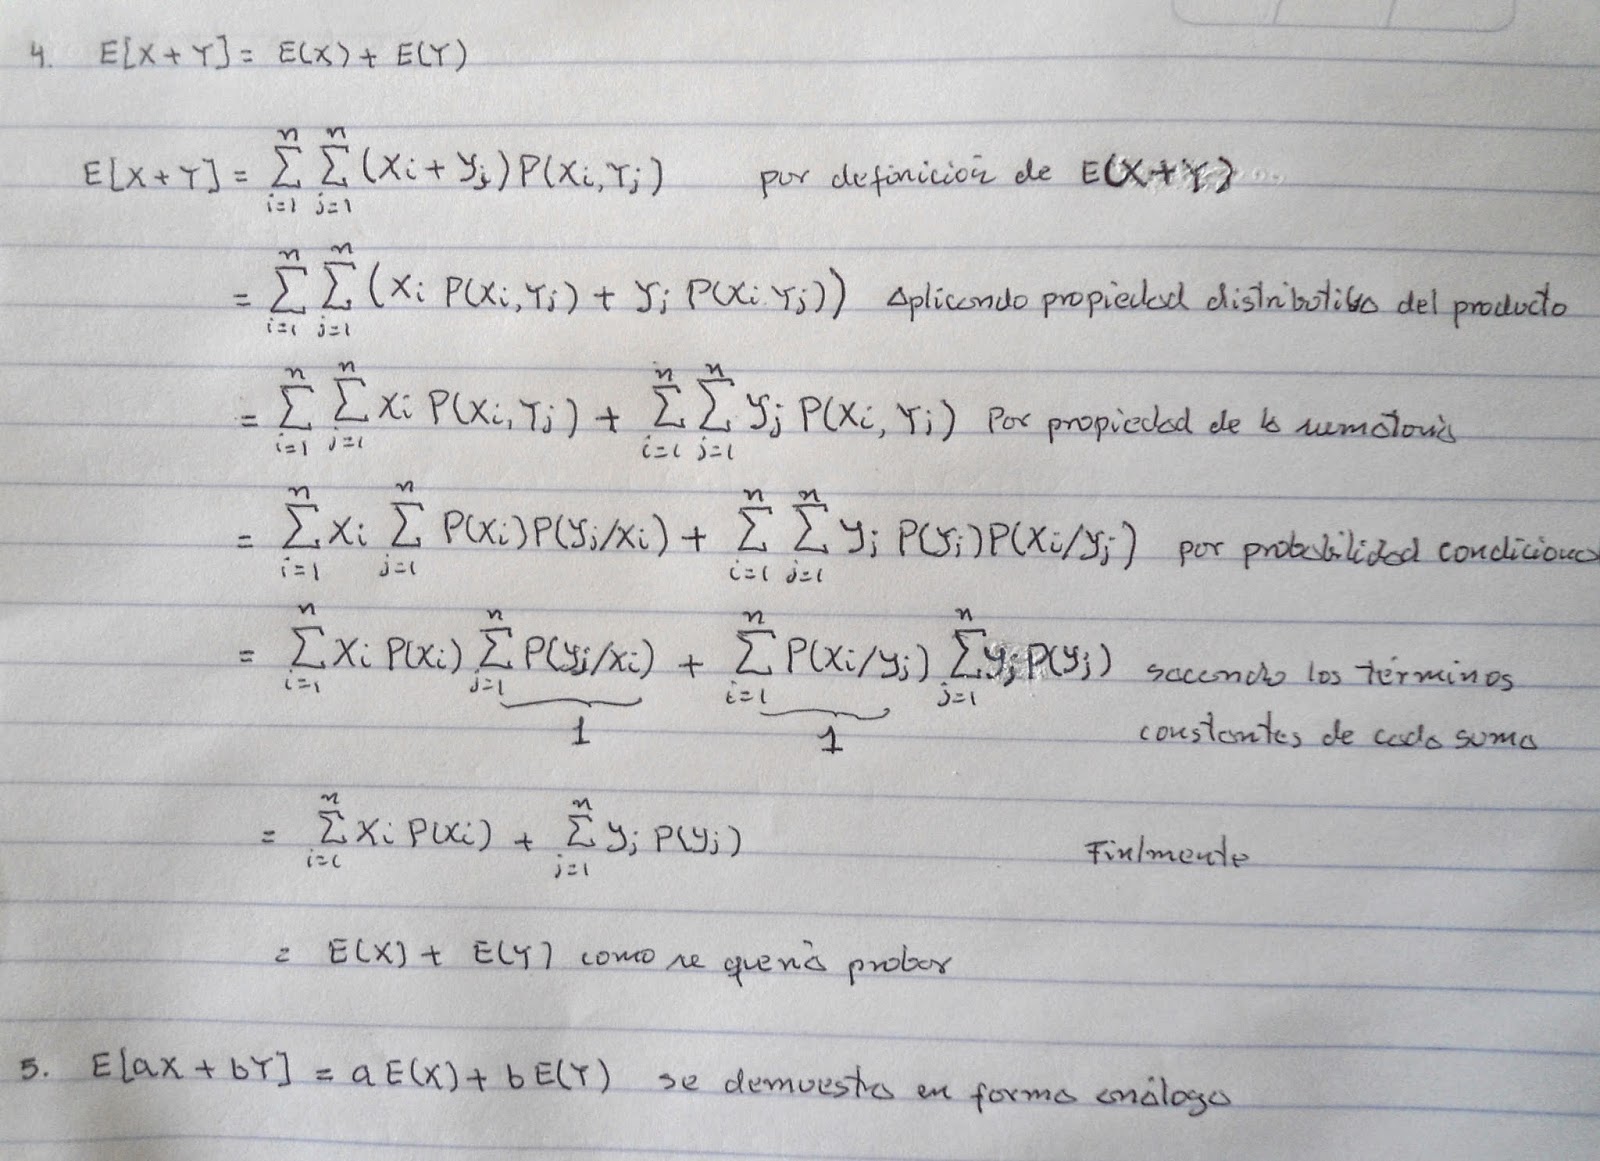 4. E[X + Y] = E(X) + E(Y)
E[X + Y] = ∑_{i=1}^{n} ∑_{j=1}^{n} (Xi + yj) P(Xi, Yj) por definición de E(X + Y)
= ∑_{i=1}^{n} ∑_{j=1}^{n} (Xi P(Xi, Yj) + yj P(Xi Yj)) Aplicando propiedad distributiva del producto
= ∑_{i=1}^{n} ∑_{j=1}^{n} Xi P(Xi, Yj) + ∑_{i=1}^{n} ∑_{j=1}^{n} yj P(Xi, Yj) Por propiedad de la sumatoria
= ∑_{i=1}^{n} Xi ∑_{j=1}^{n} P(Xi) P(yj/xi) + ∑_{i=1}^{n} ∑_{j=1}^{n} yj P(yj) P(Xi/yj) por probabilidad condicional
= ∑_{i=1}^{n} Xi P(Xi) ∑_{j=1}^{n} P(yj/xi) + ∑_{i=1}^{n} P(Xi/yj) ∑_{j=1}^{n} yj P(yj) sacando los términos
1 1 constantes de cada suma
= ∑_{i=1}^{n} Xi P(Xi) + ∑_{j=1}^{n} yj P(yj) Finlmente
= E(X) + E(Y) como se quería probar
5. E[aX + bY] = a E(X) + b E(Y) se demuestra en forma análoga